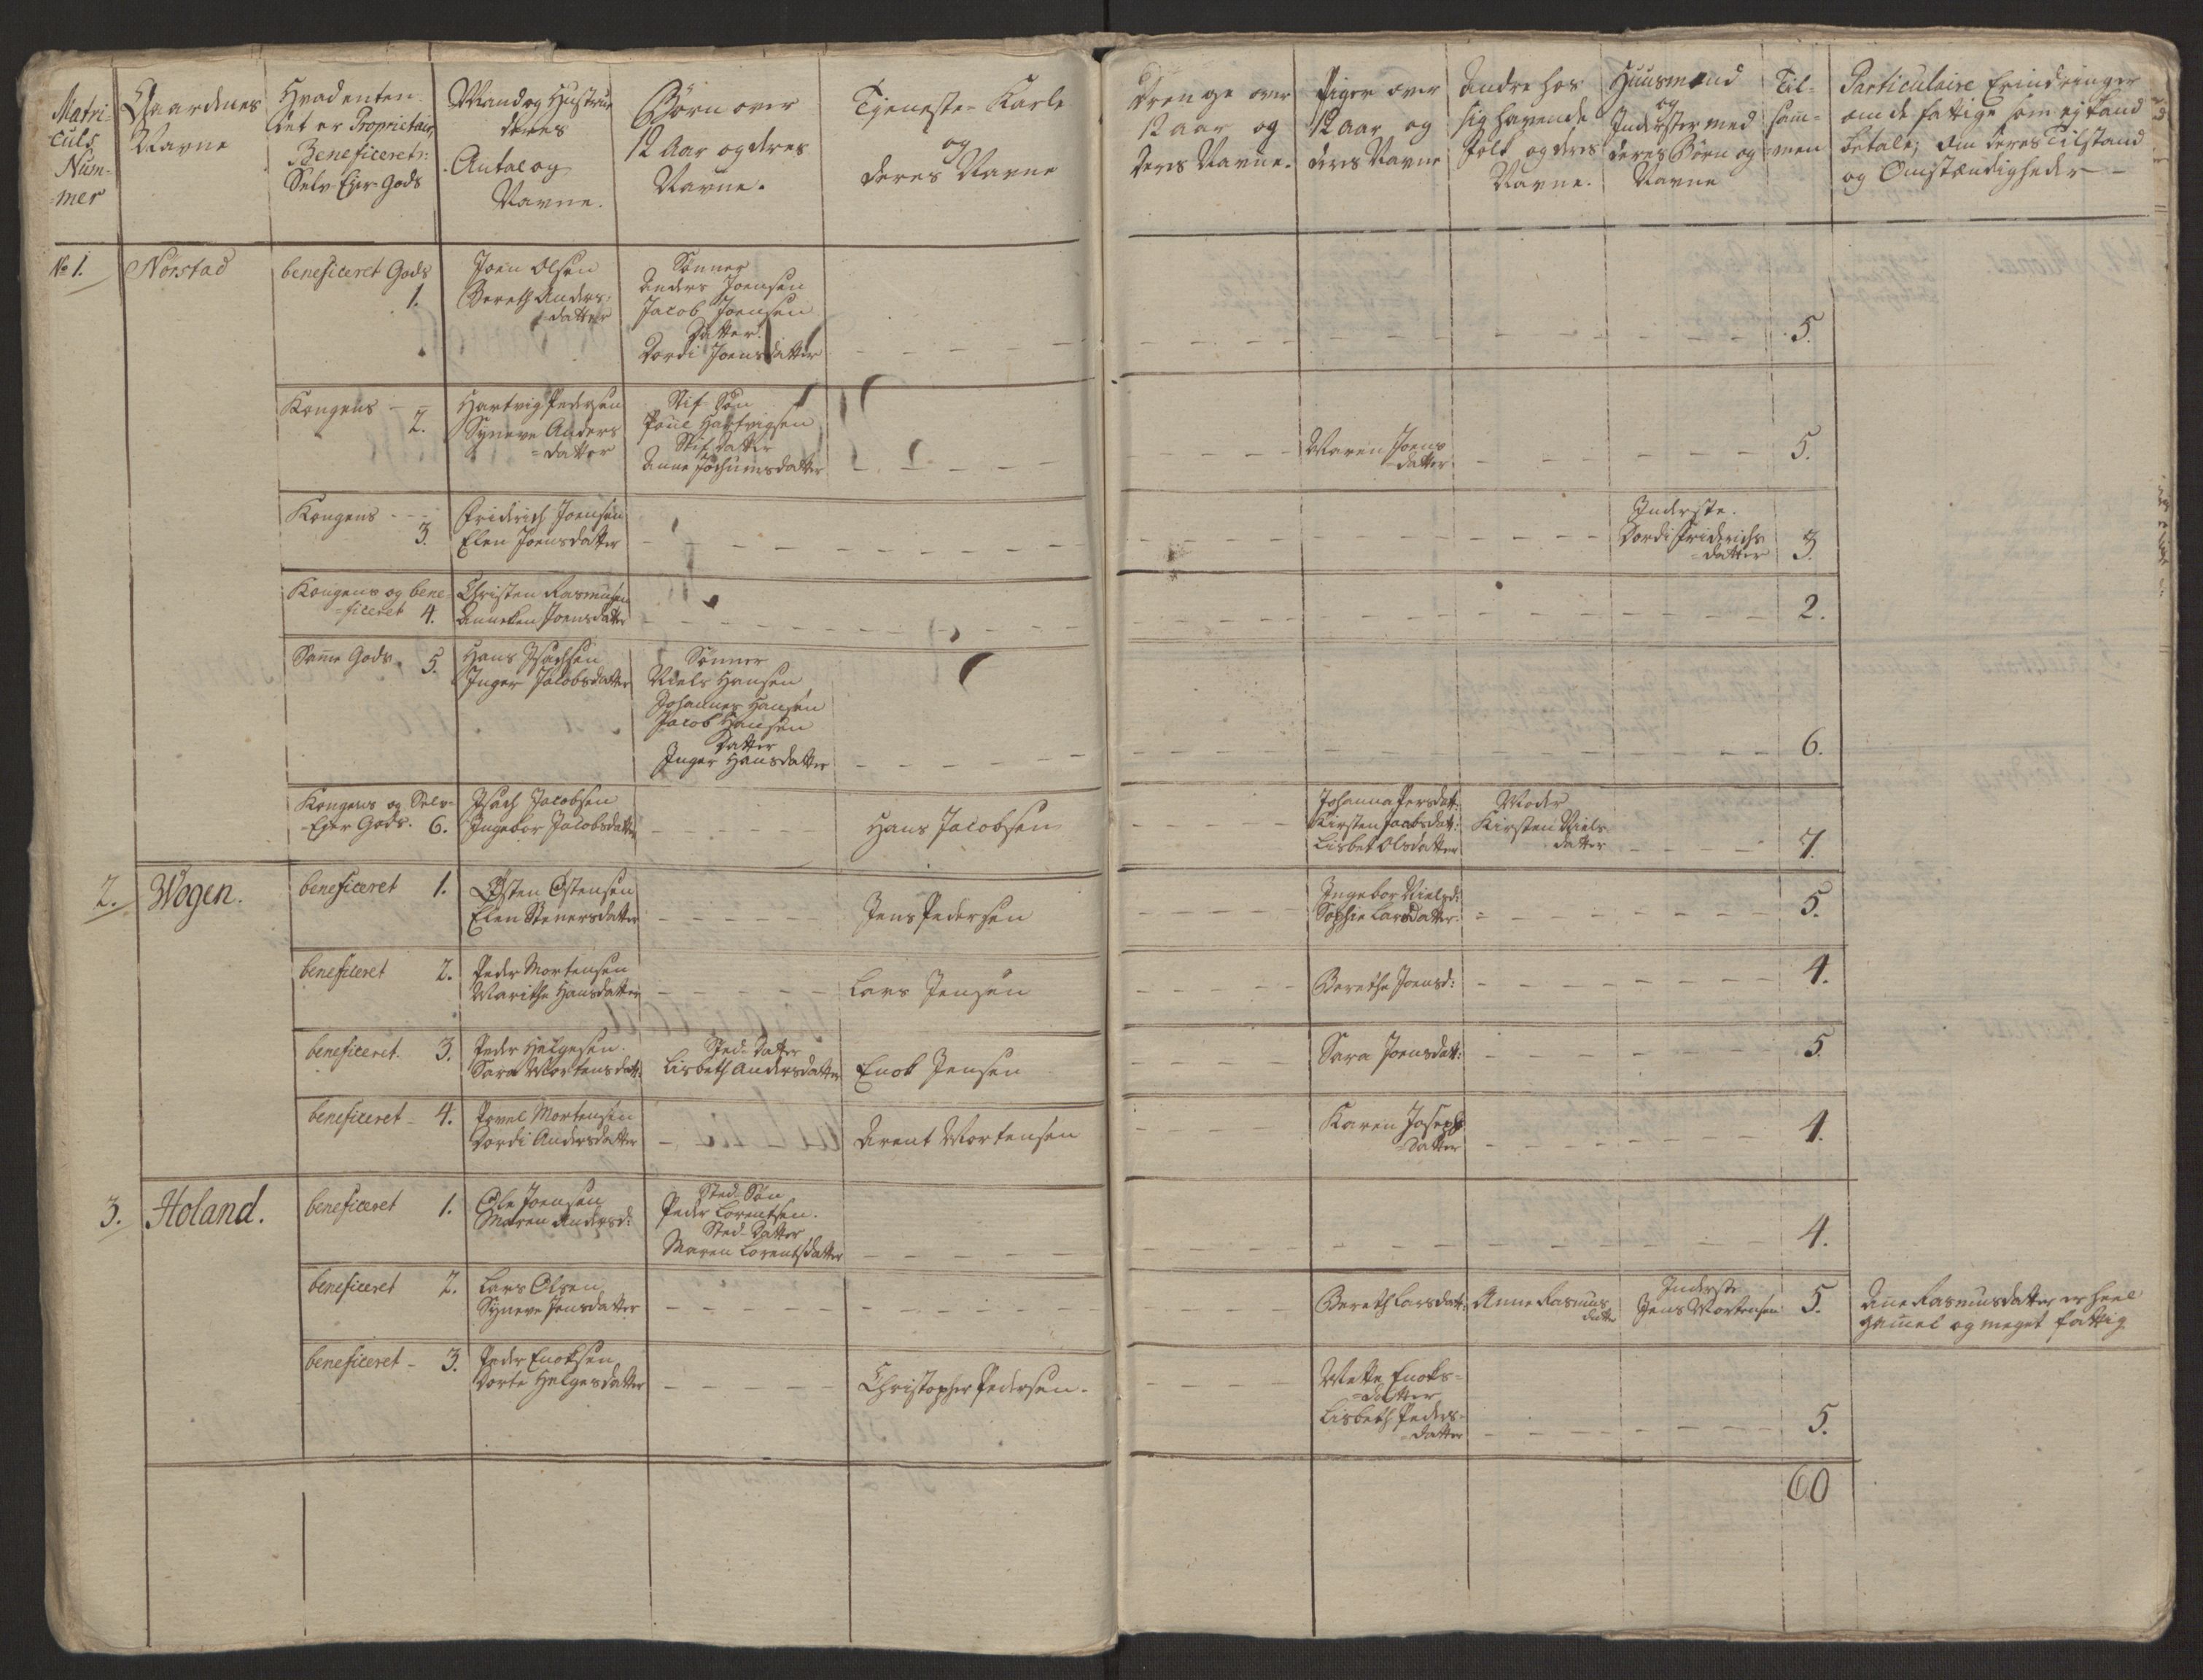 Matri-
culs
Num-
mer
Gaardenes
Navne
Hvad enten
det er Proprietair,
Beneficeret
Selv-Ejer-Gods
Mand og Hustrue
deres
Antal og
Navne.
Börn over
12 Aar og deres
Navne.
Tjeneste-Karle
og
deres Navne
Drenge over
12 aar og
deres Navne.
Piger over
12 aar og
deres Navne
Andre hos
sig havende
folk og deres
Navne.
Huusmænd
og
Inderster med
deres Börn og
Navne
Til-
sam-
men
Particulaire Erindringer
om de fattige som ej kand
betale; Om deres Tilstand
og Omstændigheder
No 1.
Nörstad
beneficeret Gods
1.
Joen Olsen
Bereth Anders-
datter
Sönner
Anders Joensen
Jacob Joensen
Datter
Dordi Joensdatter
5.
Kongens
2.
Hartvig Pedersen
Synneve Anders
=datter
Stif Sön
Poul Hartvigsen
Stifdatter
Anne Jochumsdatter
Maren Joens
=datter
5.
Kongens
3.
Friderich Joensen
Elen Joensdatter
Inderste.
Dordi Friderichs
=datter
3.
Kongens og bene-
=ficeret 4.
Christen Rasmusen
Anneken Joensdatter
2.
Samme Gods. 5.
Hans Isachsen
Inger Jacobsdatter
Sönner
Niels Hansen
Johannes Hansen
Jacob Hansen
Datter
Inger Hansdatter
6.
Kongens og Selv-
Ejer Gods. 6.
Isach Jacobsen
Ingebor Jacobsdatter
Hans Jacobsen
Johanna Persdat:
Kirsten Jacobsdat:
Lisbet Olsdatter
Moder
Kirsten Niels
datter
7.
2.
Wogen.
beneficeret 1.
Östen Östensen
Elen Stenersdatter
Jens Pedersen
Ingebor Nielsd:
Sophie Larsdatter
5.
beneficeret 2.
Peder Mortensen
Marithe Hansdatter
Lars Jensen
Berethe Joensd:
4.
beneficeret. 3.
Peder Helgesen.
Sara Mortensdatt:
Sted-datter
Lisbeth Andersdatter
Enok Jensen
Sara Joensdat:
5.
beneficeret 4.
Povel Mortensen
Dordi Andersdatter
Arent Mortensen
Karen Joseph
=datter
4.
3.
Holand.
beneficeret 1.
Ole Joensen
Maren Andersd:
Sted-Sön
Peder Lorentsen.
Sted-Datter
Maren Lorentsdatter
4.
beneficeret 2.
Lars Olsen
Synneve Jensdatter
Bereth Larsdatt:
Anne Rasmus
datter
Inderste
Jens Mortensen
5.
Ane Rasmusdatter er heel
gammel og meget fattig
beneficeret 3.
Peder Enoksen
Dorte Helgesdatter
Christopher Pedersen.
Mette Enoks-
=datter
Lisbeth Peders-
datter
5.
60